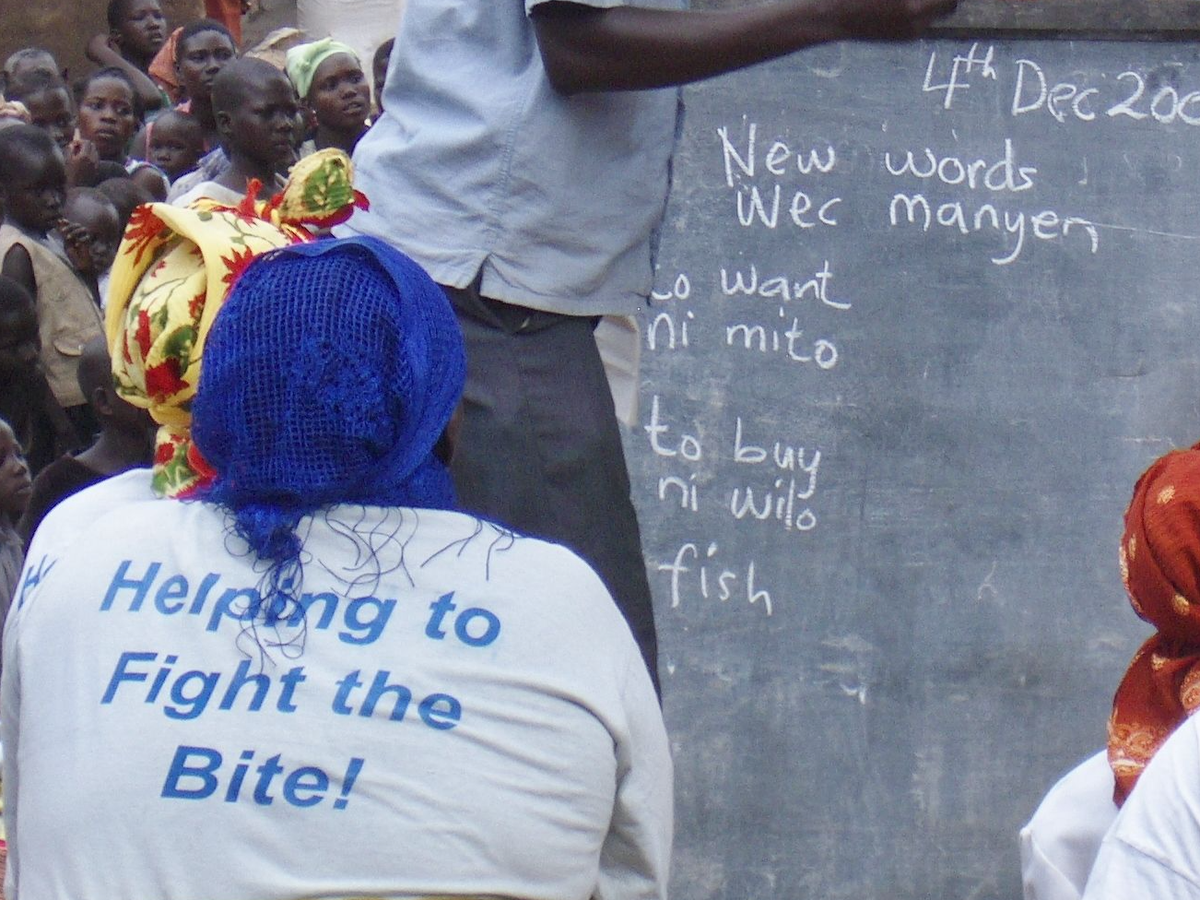 4th Dec 200
New words
Wec manyen
to want
ni mito
to buy
ni wilo
fish
Helping to
Fight the
Bite!